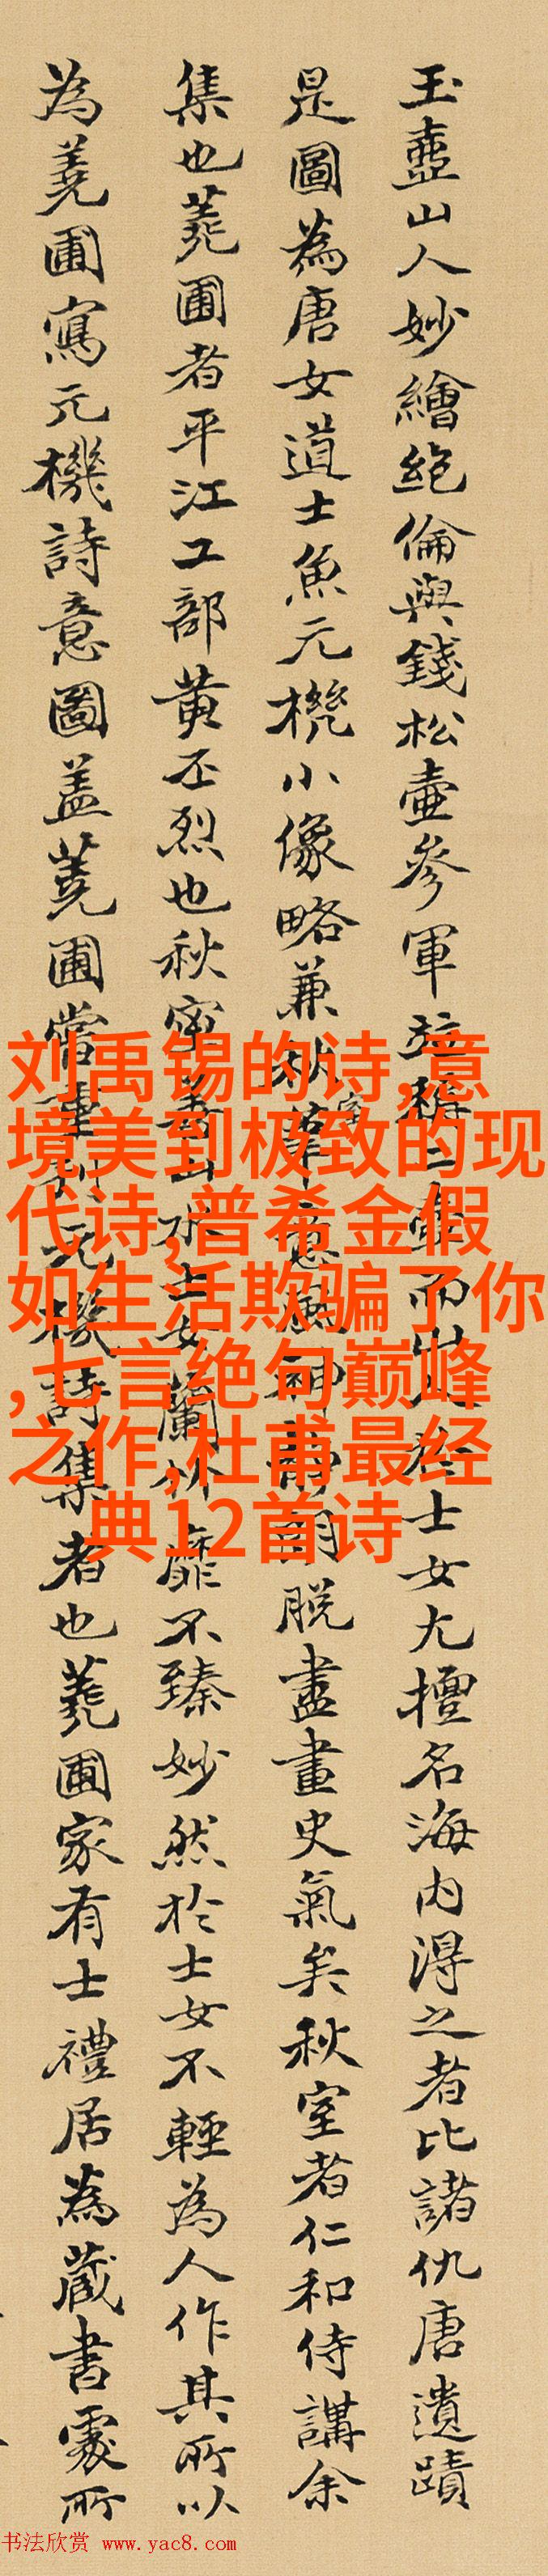 玉壺山人妙繪絶倫與錢松壷參軍並稱二壷而改於士女尤擅名海内得之者比諸仇唐遺蹟
是圖為唐女道士魚元機小像略兼秋室筆意風神蕭朗脱盡畫史氣矣秋室者仁和侍講余
集也蕘圃者平江工部黄丕烈也秋室善山水士女蘭竹靡不臻妙然於士女不輕為人作其所以
為蕘圃寫元機詩意圖盖蕘圃嘗重刊元機詩集者也蕘圃家有士禮居為蔵書處所
刘禹锡的诗,意
境美到极致的现
代诗,普希金假
如生活欺骗了你
,七言绝句巅峰
之作,杜甫最经
典12首诗
书法欣赏 www.yac8.com